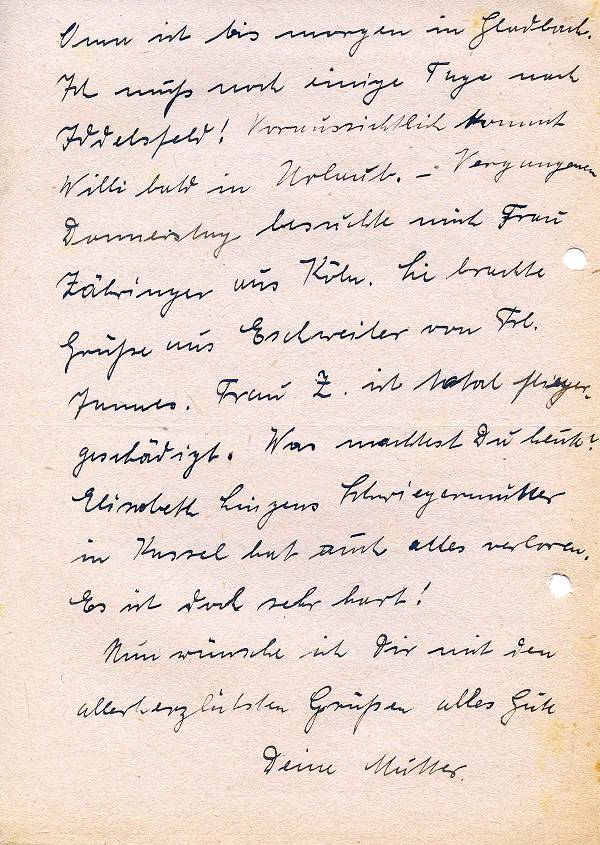 Oma ist bis morgen in Gladbach.
Ich muß noch einige Tage nach
Iddelsfeld! Voraussichtlich kommt
Willi bald in Urlaub. – Vergangenen
Donnerstag besuchte mich Frau
Zähringer aus Köln. Sie brachte
Grüße aus Eschweiler von Frl.
Jannes. Frau Z. ist total flieger-
geschädigt. Was machtest Du heute?
Elisabeth Lingens Schwiegermutter
in Kassel hat auch alles verloren.
Es ist doch sehr hart!
Nun wünsche ich Dir mit den
allerherzlichsten Grüßen alles Gute
Deine Mutter.